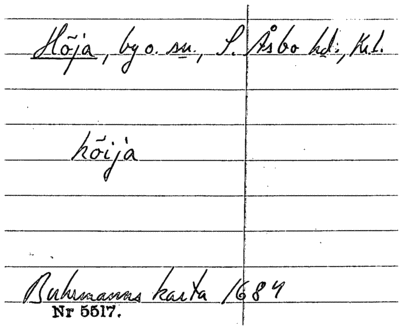 Höja, by o. sn., S. Åsbo hd:, Kr.l.
höija
Buhrmanns karta 1684
Nr 5517.